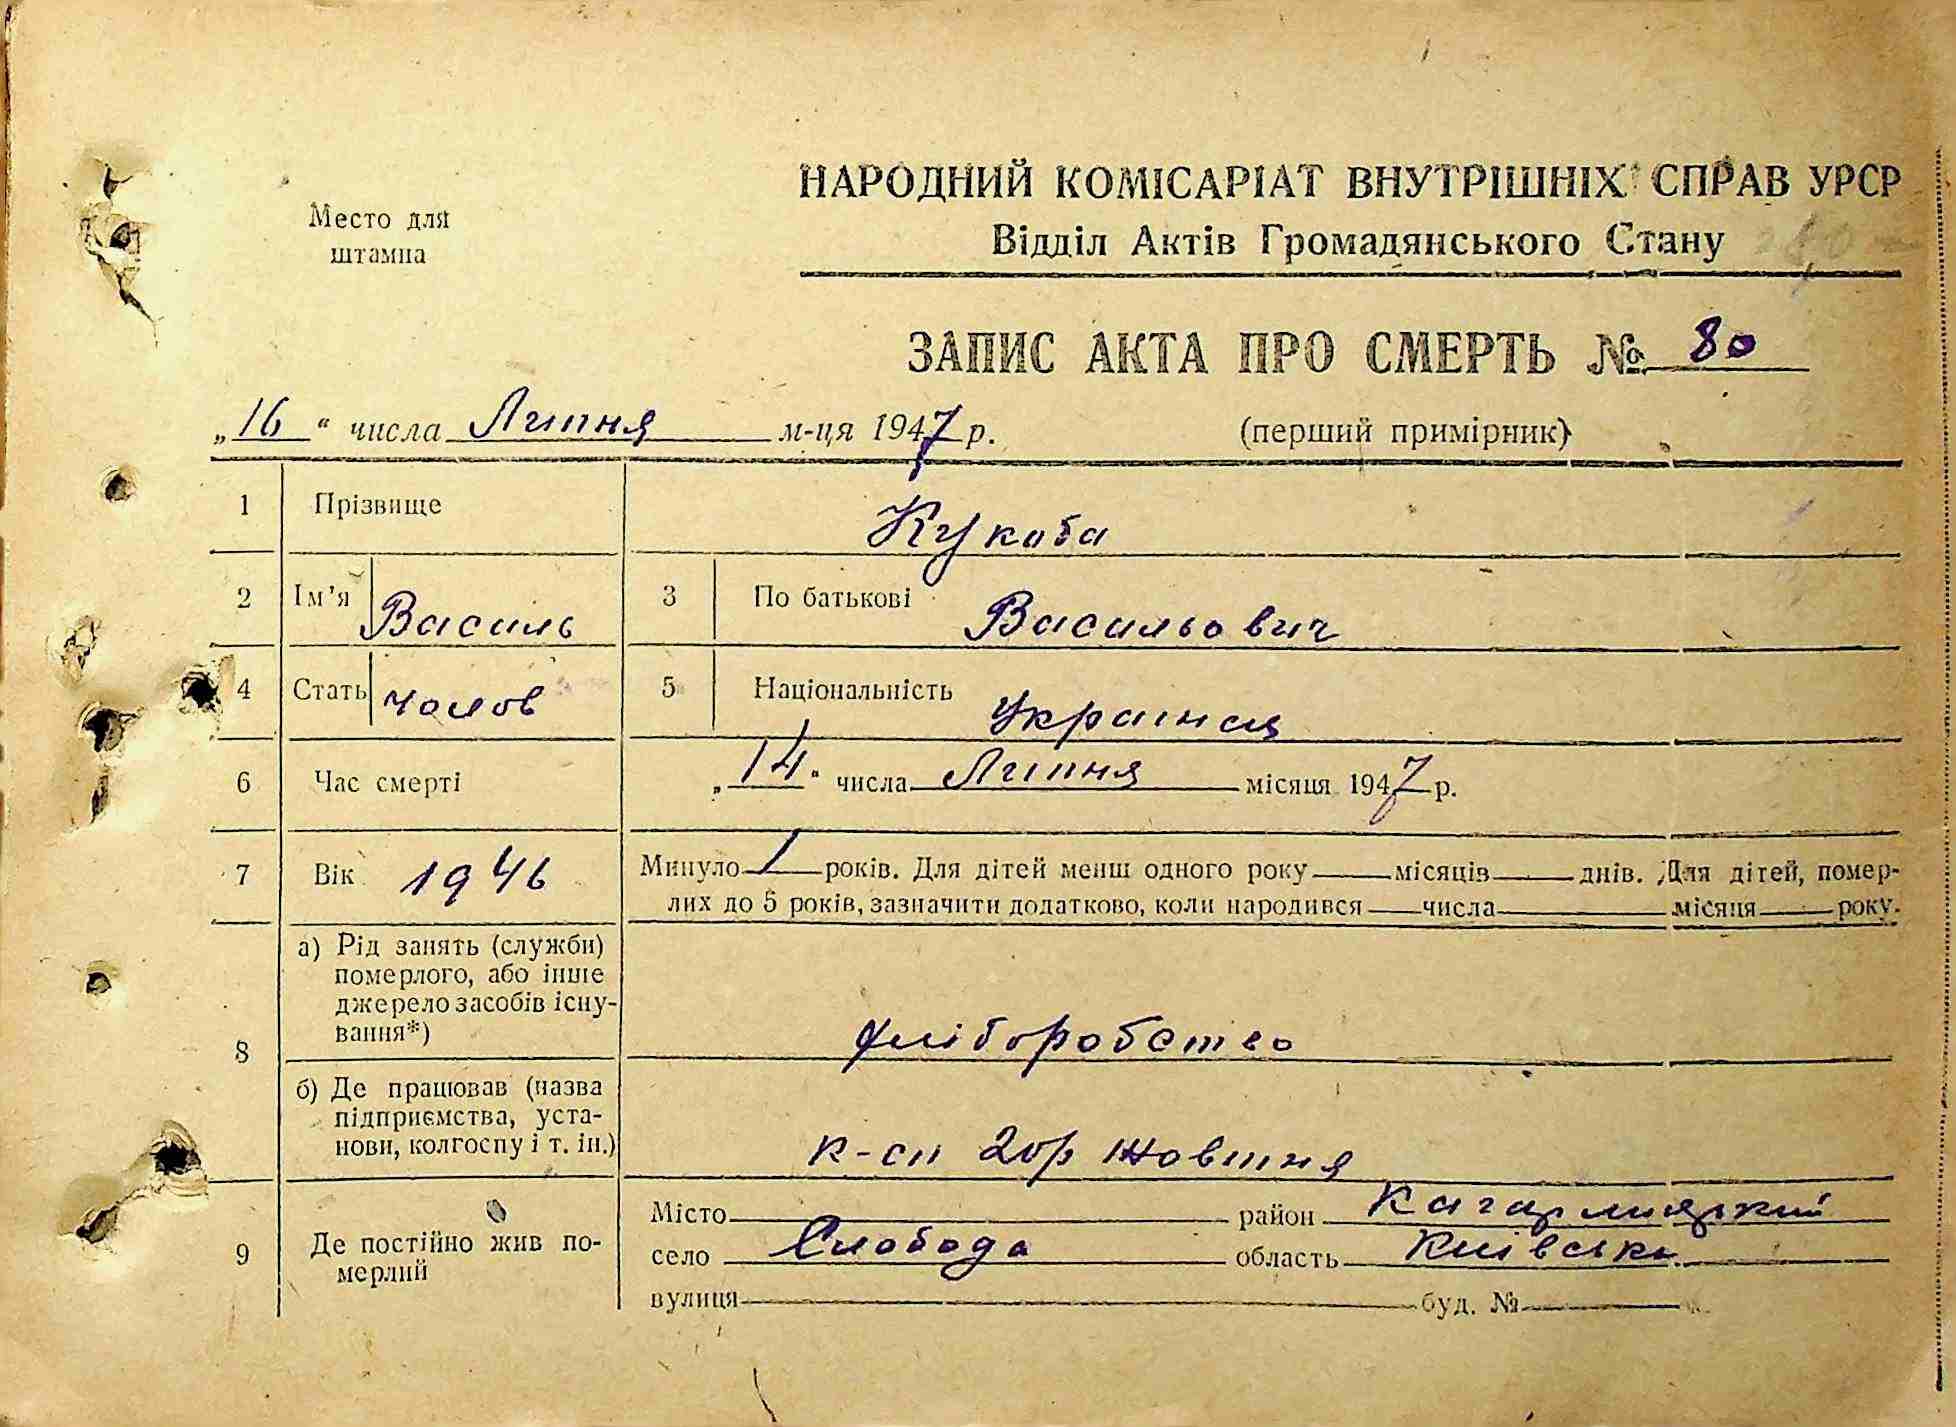 Место для
штампа
НАРОДНИЙ КОМІСАРІАТ ВНУТРІШНІХ СПРАВ УРСР
Відділ Актів Громадянського Стану
ЗАПИС АКТА ПРО СМЕРТЬ № 80
„16“ числа Липня м-ця 1947 р. (перший примірник)
1 Прізвище Кукоба
2 Ім'я Василь 3 По батькові Васильович
4 Стать чолов 5 Національність Украінец
6 Час смерті „14“ числа Липня місяця 1947 р.
7 Вік 1946 Минуло 1 років. Для дітей менш одного року місяців днів. Для дітей, помер-
лих до 5 років, зазначити додатково, коли народився числа місяця року.
8 а) Рід занять (служби)
померлого, або інше
джерело засобів існу-
вання*) хліборобство
б) Де працював (назва
підприємства, уста-
нови, колгоспу і т. ін.) к-сп 20 р жовтня
9 Де постійно жив по-
мерлий
Місто район Кагарлицький
село Слобода область Киівська
вулиця буд. №